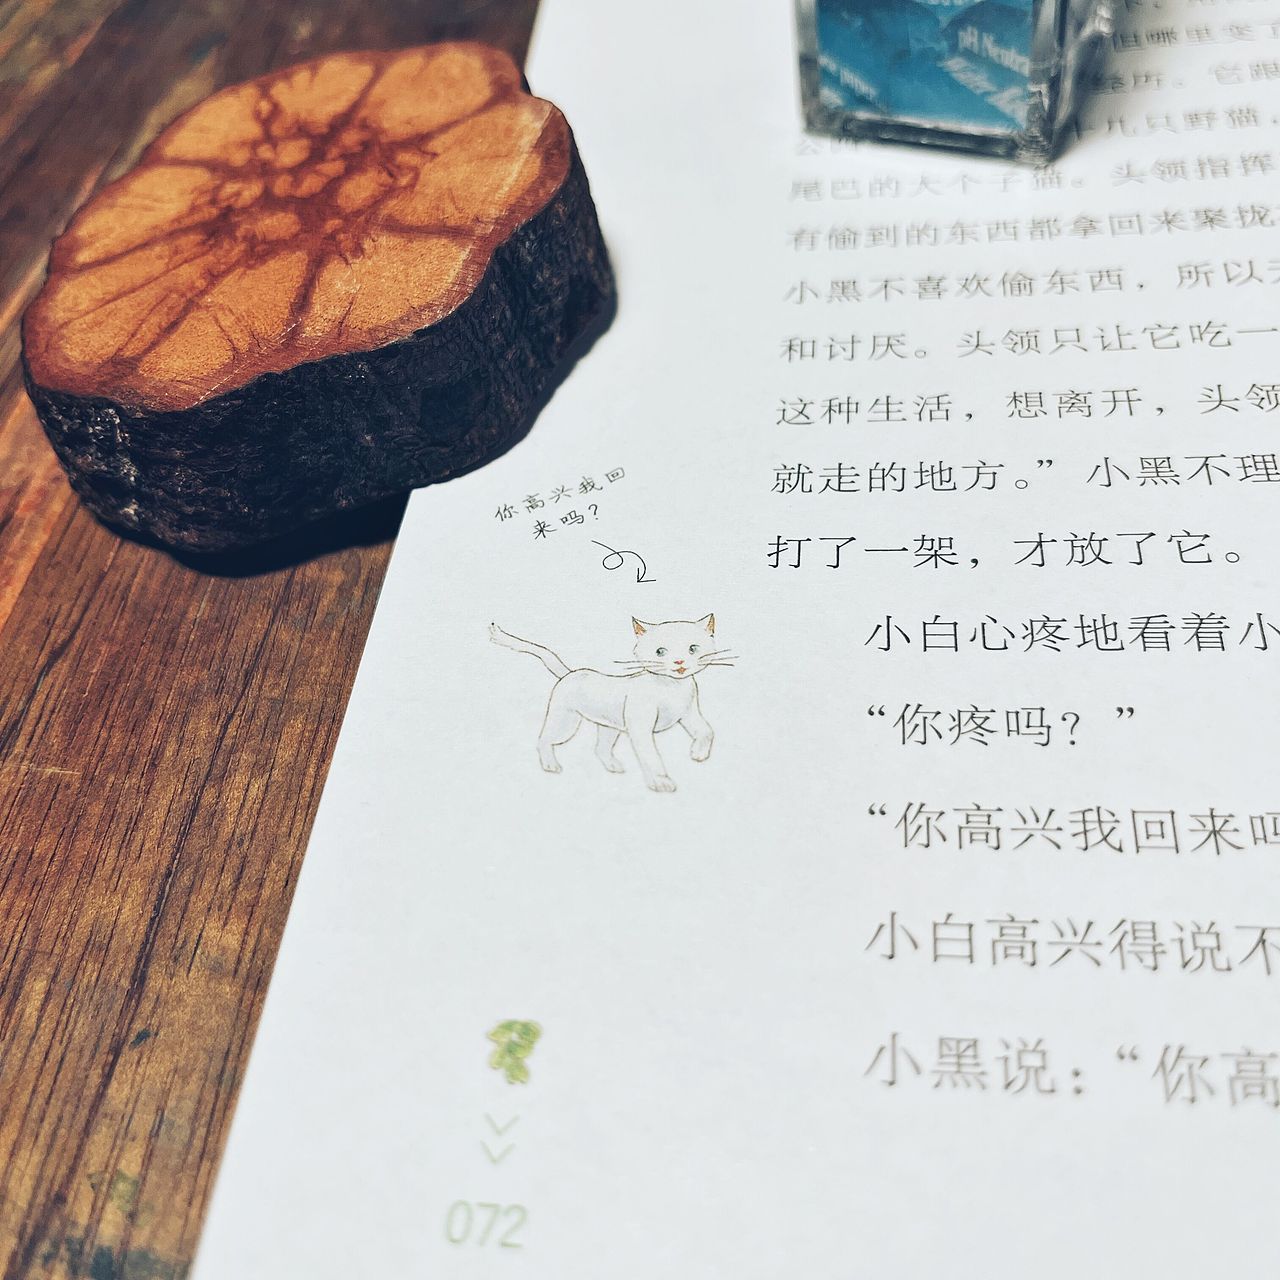 pH Neutral
但哪里
。它跟
几只野猫，
尾巴的大个子猫。头领指挥
有偷到的东西都拿回来聚拢
小黑不喜欢偷东西，所以
和讨厌。头领只让它吃一
这种生活，想离开，头领
就走的地方。”小黑不理
打了一架，才放了它。
你高兴我回
来吗？
小白心疼地看着小
“你疼吗？”
“你高兴我回来吗
小白高兴得说不
小黑说：“你高
072